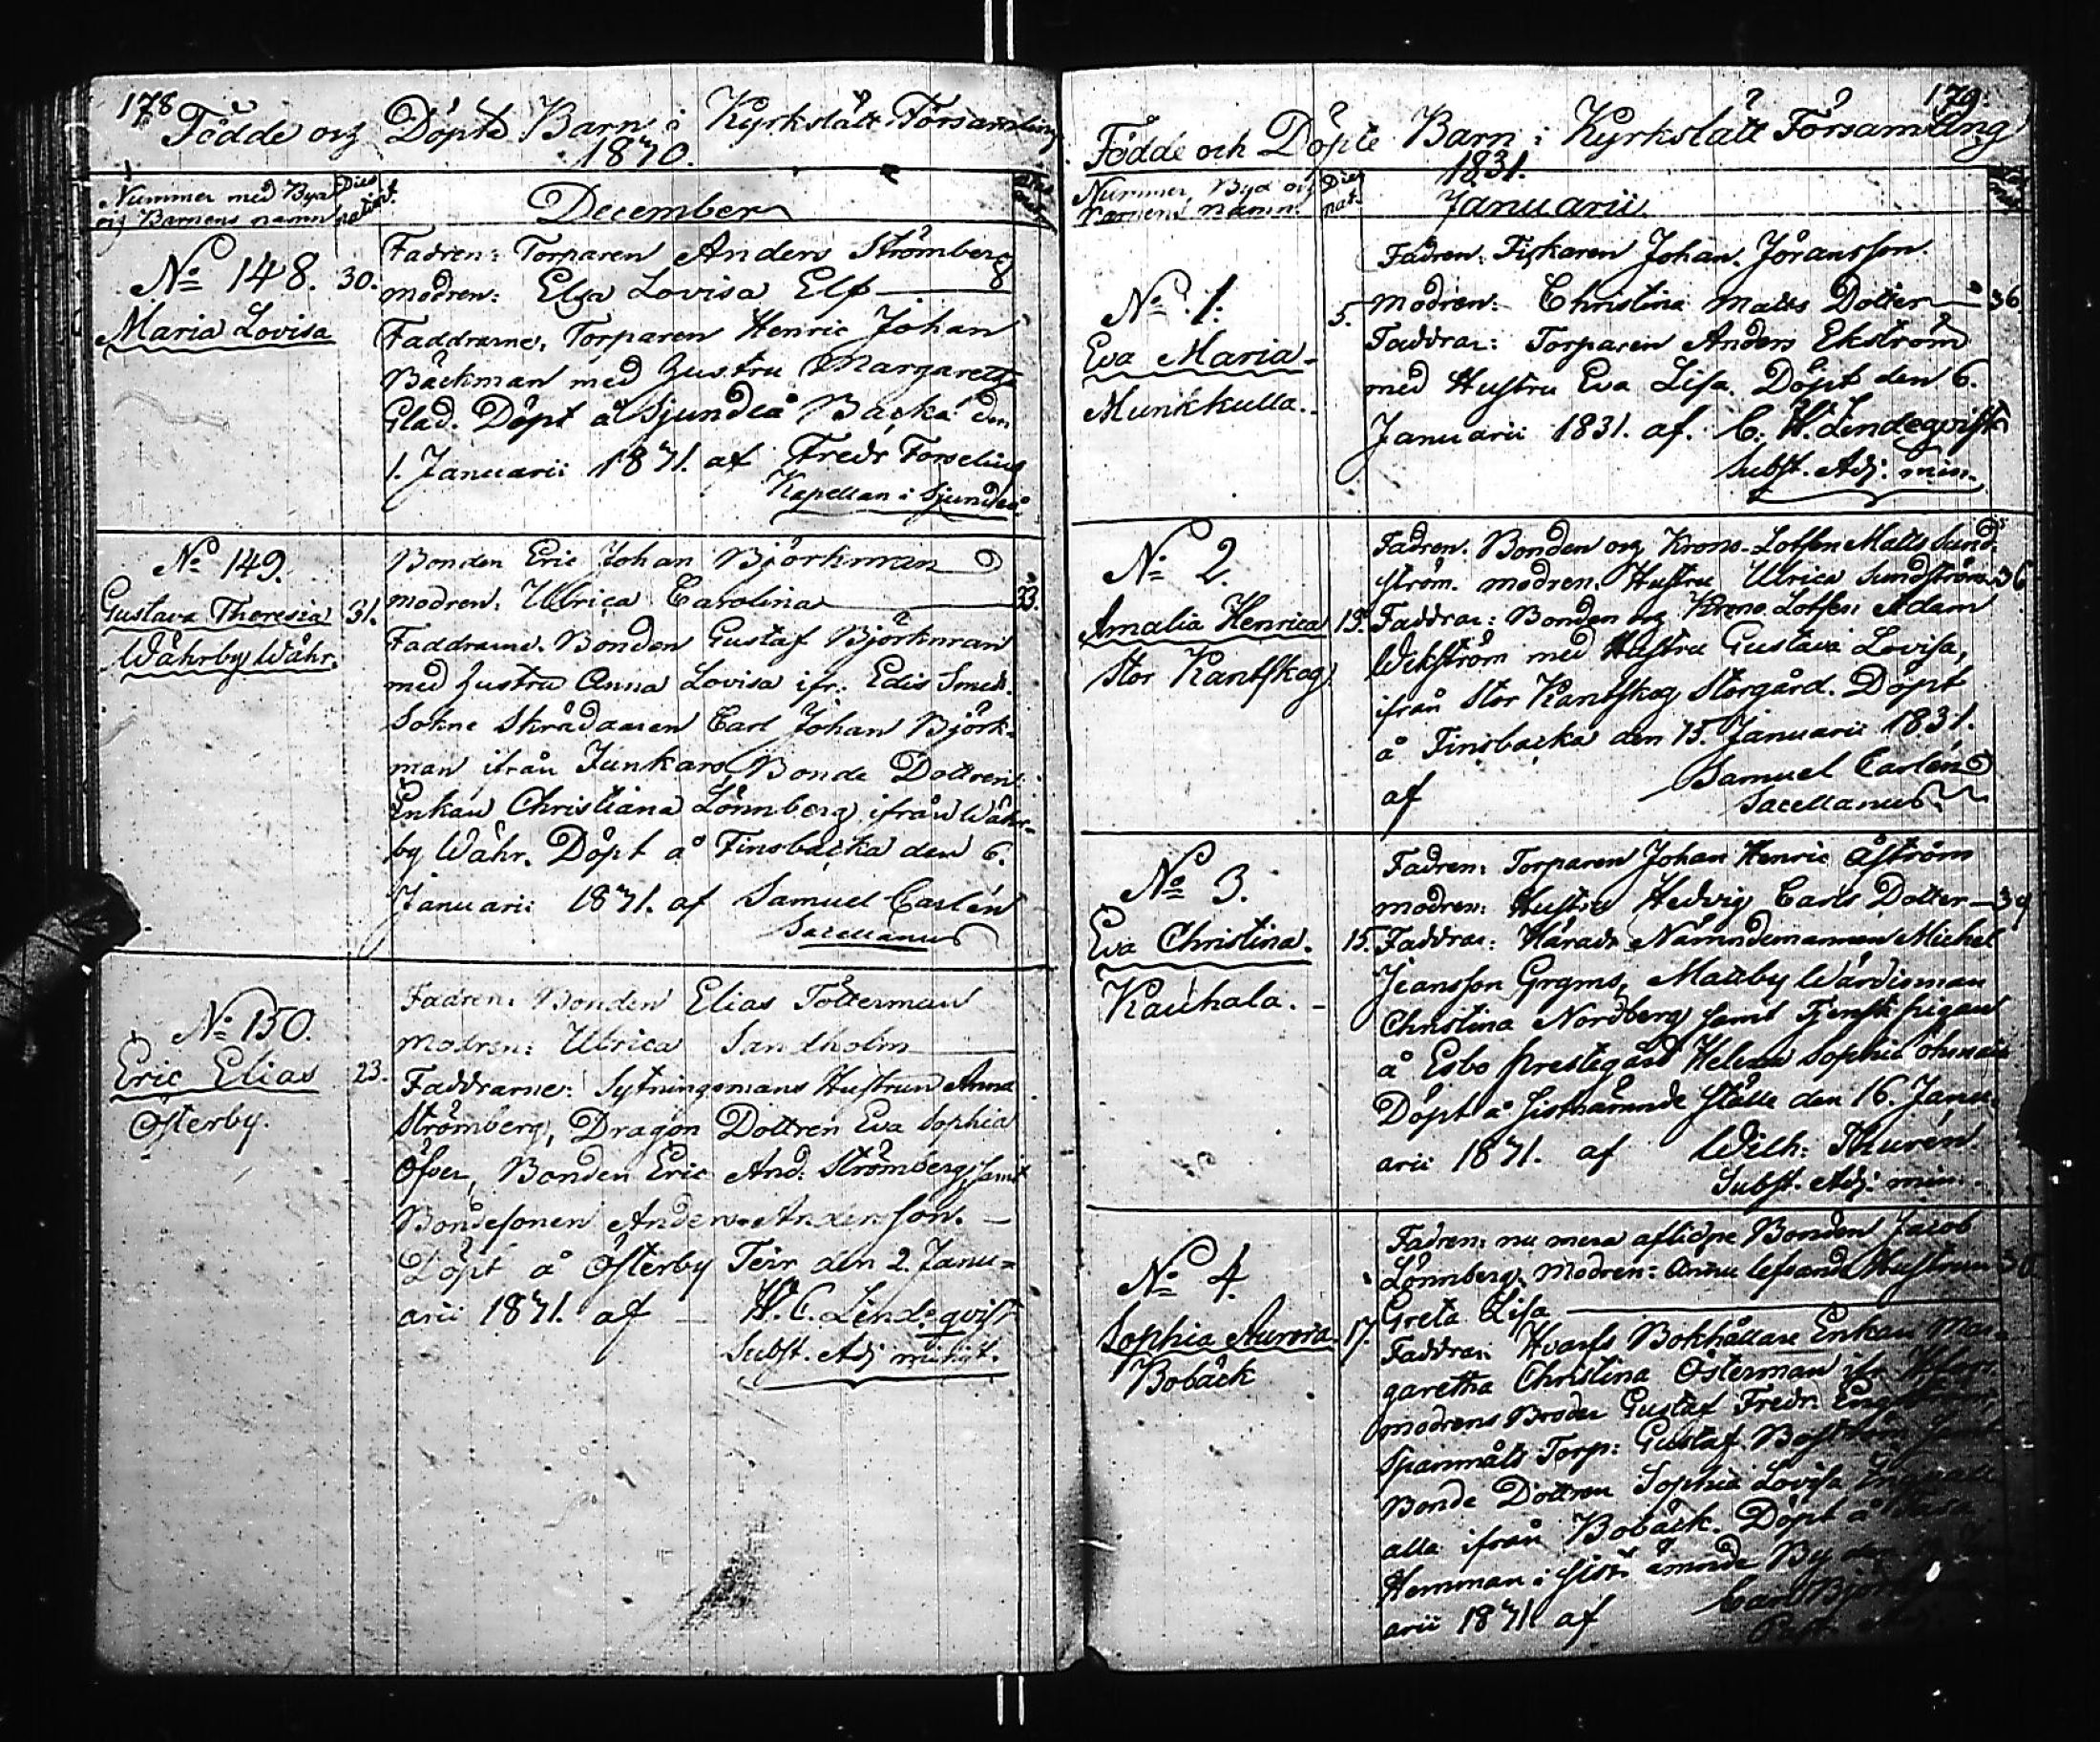 178
Födde och Döpte Barn i Kyrkslätt Församling
1830.
Nummer med Byn
och Barnens namn
Dies
nativit.
December
No 148.
30.
Maria Lovisa
Fadren: Torparen Anders Strömberg
Modren: Elsa Lovisa Elf
Faddrarne, Torparen Henric Johan
Bäckman med hustru Margaretha
Glad. Döpt å Sjundeå Backa den
1. Januarii 1831. af Fredr Forselius
Kapellan i Sjundeå
No 149.
31.
Gustava Theresia
Wåhrby Wåhr.
Bonden Eric Johan Björkman
Modren: Ulrica Carolina 33.
Faddrarne. Bonden Gustaf Björkman
med hustru Anna Lovisa ifr: Edis Smeds.
Sokne Skräddaren Carl Johan Björk-
man ifrån Junkars, Bonde Dottren
Enkan Christiana Lönnberg ifrån Wåhr-
by Wåhr. Döpt å Finsbacka den 6.
Januarii 1831. af Samuel Carlén
Sacellanus
No 150.
23.
Eric Elias
Österby.
Fadren: Bonden Elias Tötterman
Modren: Ulrica Sandholm
Faddrarne: Sytningsmans Hustrun Anna
Strömberg, Dragon Dottren Eva Sophia
Öfver, Bonden Eric And: Strömberg, samt
Bondesonen Anders Andersson.
Döpt å Österby Teir den 2. Janu=
arii 1831. af W. C. Lindeqvist
Subst. Adj minist.
179.
Födde och Döpte Barn i Kyrkslätt Församling
1831.
Nummer, Byn och
Barnens namn.
Dies
nat.
Januarii
No 1.
5.
Eva Maria
Munkkulla.
Fadren: Fiskaren Johan Jöransson.
Modren: Christina Matts Dotter 36.
Faddrar: Torparen Anders Ekström
med Hustru Eva Lisa. Döpt den 6.
Januarii 1831. af. C. W. Lindeqvist
Subst. Adj: min.
No 2.
13.
Amalia Henrica
Stor Kantskog
Fadren. Bonden och Krono-Lotsen Matts Sund-
ström. Modren. Hustru Ulrica Sundström 36
Faddrar: Bonden och Krono Lotsen Adam
Wekström med Hustru Gustava Lovisa,
ifrån Stor Kantskog Storgård. Döpt
å Finsbacka den 15. Januarii 1831.
af Samuel Carlén
Sacellanus
No 3.
15.
Eva Christina.
Kauhala.
Fadren: Torparen Johan Henric Åström
Modren: Hustru Hedvig Carls Dotter
Faddrar: Härads Nämndemannen Michel
Jeansson Grgms, Mattby Wärdinnan
Christina Nordberg samt Tjenste pigan
å Esbo prestegård Helena Sophia
Döpt å sistnämnde ställe den 16. Janu-
arii 1831. af Wilh: Thurén
Subst. Adj: min.
No 4.
17.
Sophia Aurora
Bobäck
Fadren: nu mera aflidne Bonden Jacob
Lönnberg. Modren: Ännu lefvande Hustrun
Greta Lisa
Faddrar: Hvarfs Bokhållare Enkan Mar-
garetha Christina Österman ifr.
Modrens Broder Gustaf Fredr: Engström,
Spanmåls Torp: Gustaf Boström samt
Bonde Dottren Sophia Lovisa
alla ifrån Bobäck. Döpt å
Hemman i sistnämnde By den
arii 1831. af Carl